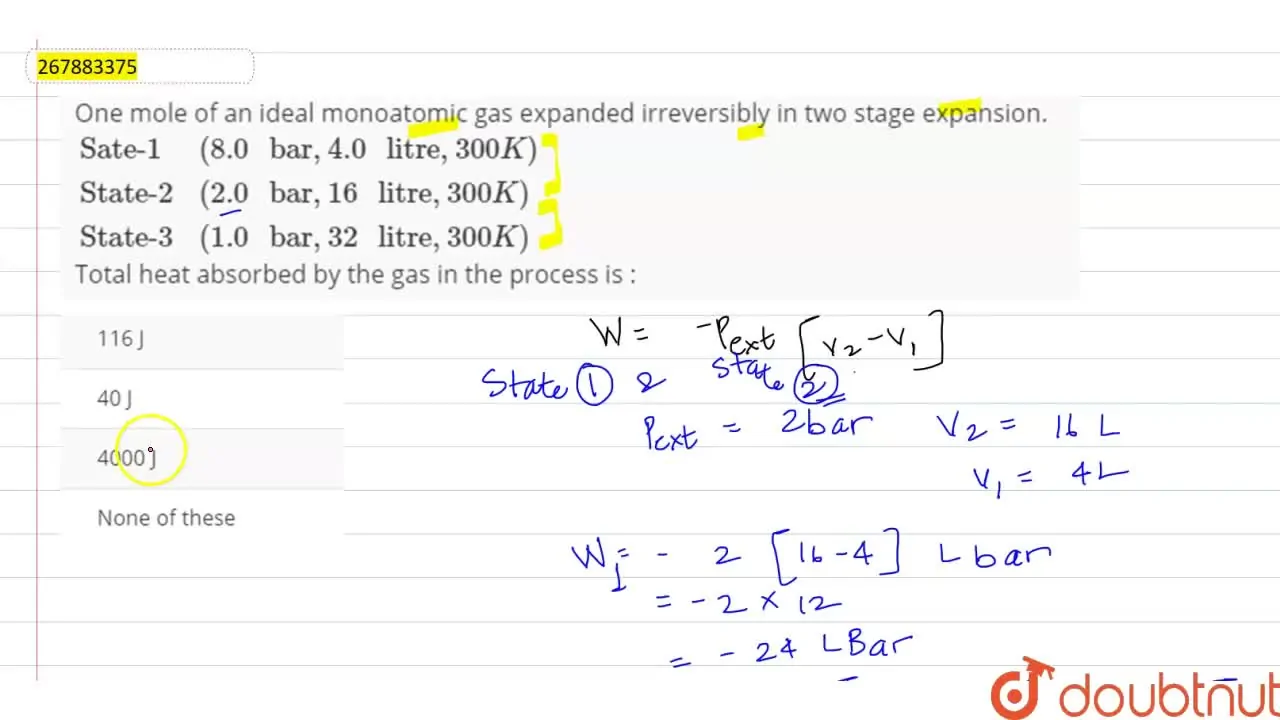 267883375
One mole of an ideal monoatomic gas expanded irreversibly in two stage expansion.
Sate-1 (8.0 bar, 4.0 litre, 300K)
State-2 (2.0 bar, 16 litre, 300K)
State-3 (1.0 bar, 32 litre, 300K)
Total heat absorbed by the gas in the process is :
116 J
40 J
4000 J
None of these
W = -Pext [V2 - V1]
State 1 & State 2
Pext = 2bar V2 = 16 L
V1 = 4L
W1 = - 2 [16-4] L bar
= -2 × 12
= - 24 LBar
doubtnut